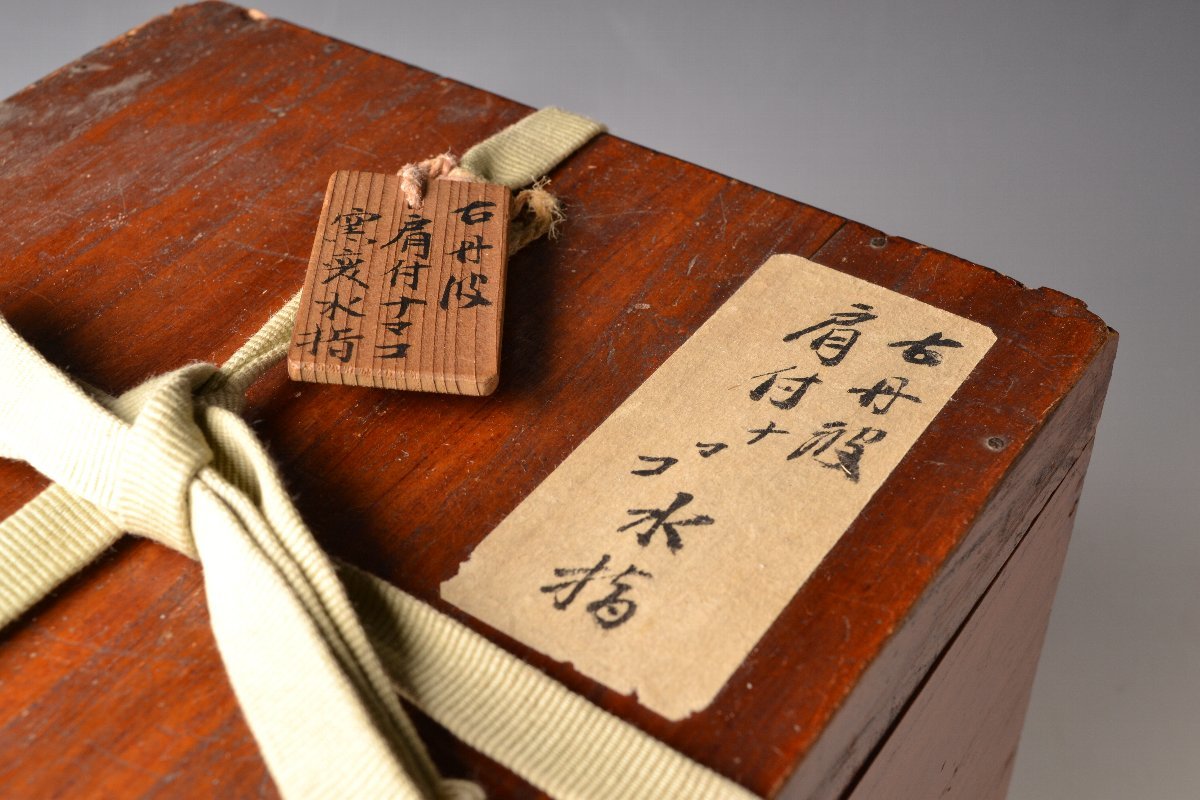 古丹波
肩付ナマコ
窯変水指
古丹波
肩付ナマコ水指